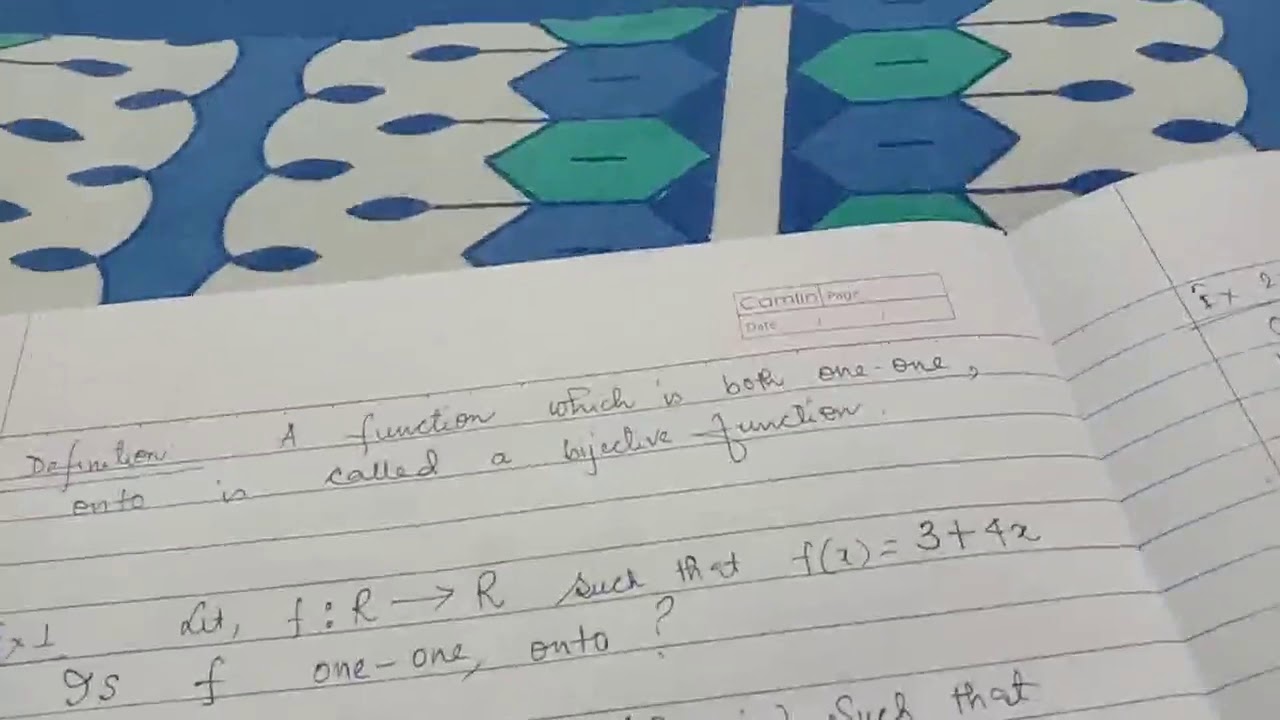 Camlin Page
Date / /
Definition A function which is both one-one,
onto is called a bijective function.
Ex 1 Let, f : R → R such that f(x) = 3 + 4x
Is f one-one, onto ?
such that
Ex 2